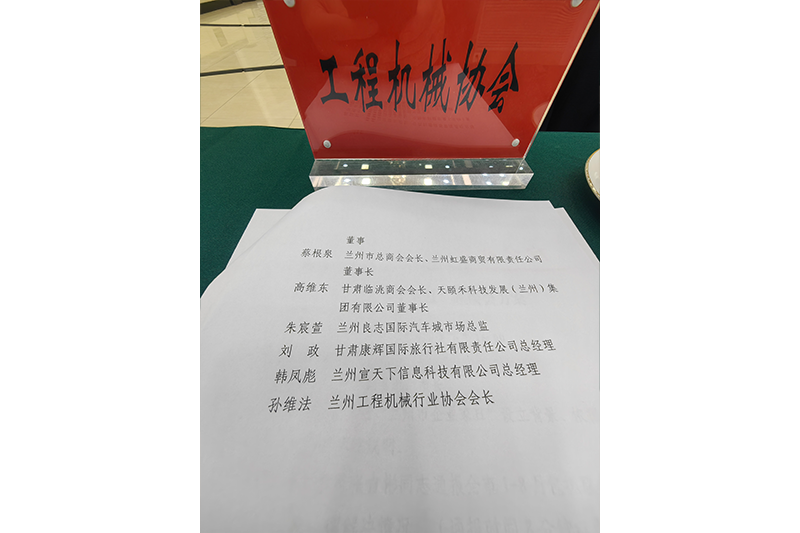 工程机械协会
董事
蔡根泉 兰州市总商会会长、兰州虹盛商贸有限责任公司
董事长
高维东 甘肃临洮商会会长、天颐禾科技发展(兰州)集
团有限公司董事长
朱宸萱 兰州良志国际汽车城市场总监
刘 政 甘肃康辉国际旅行社有限责任公司总经理
韩凤彪 兰州宣天下信息科技有限公司总经理
孙维法 兰州工程机械行业协会会长